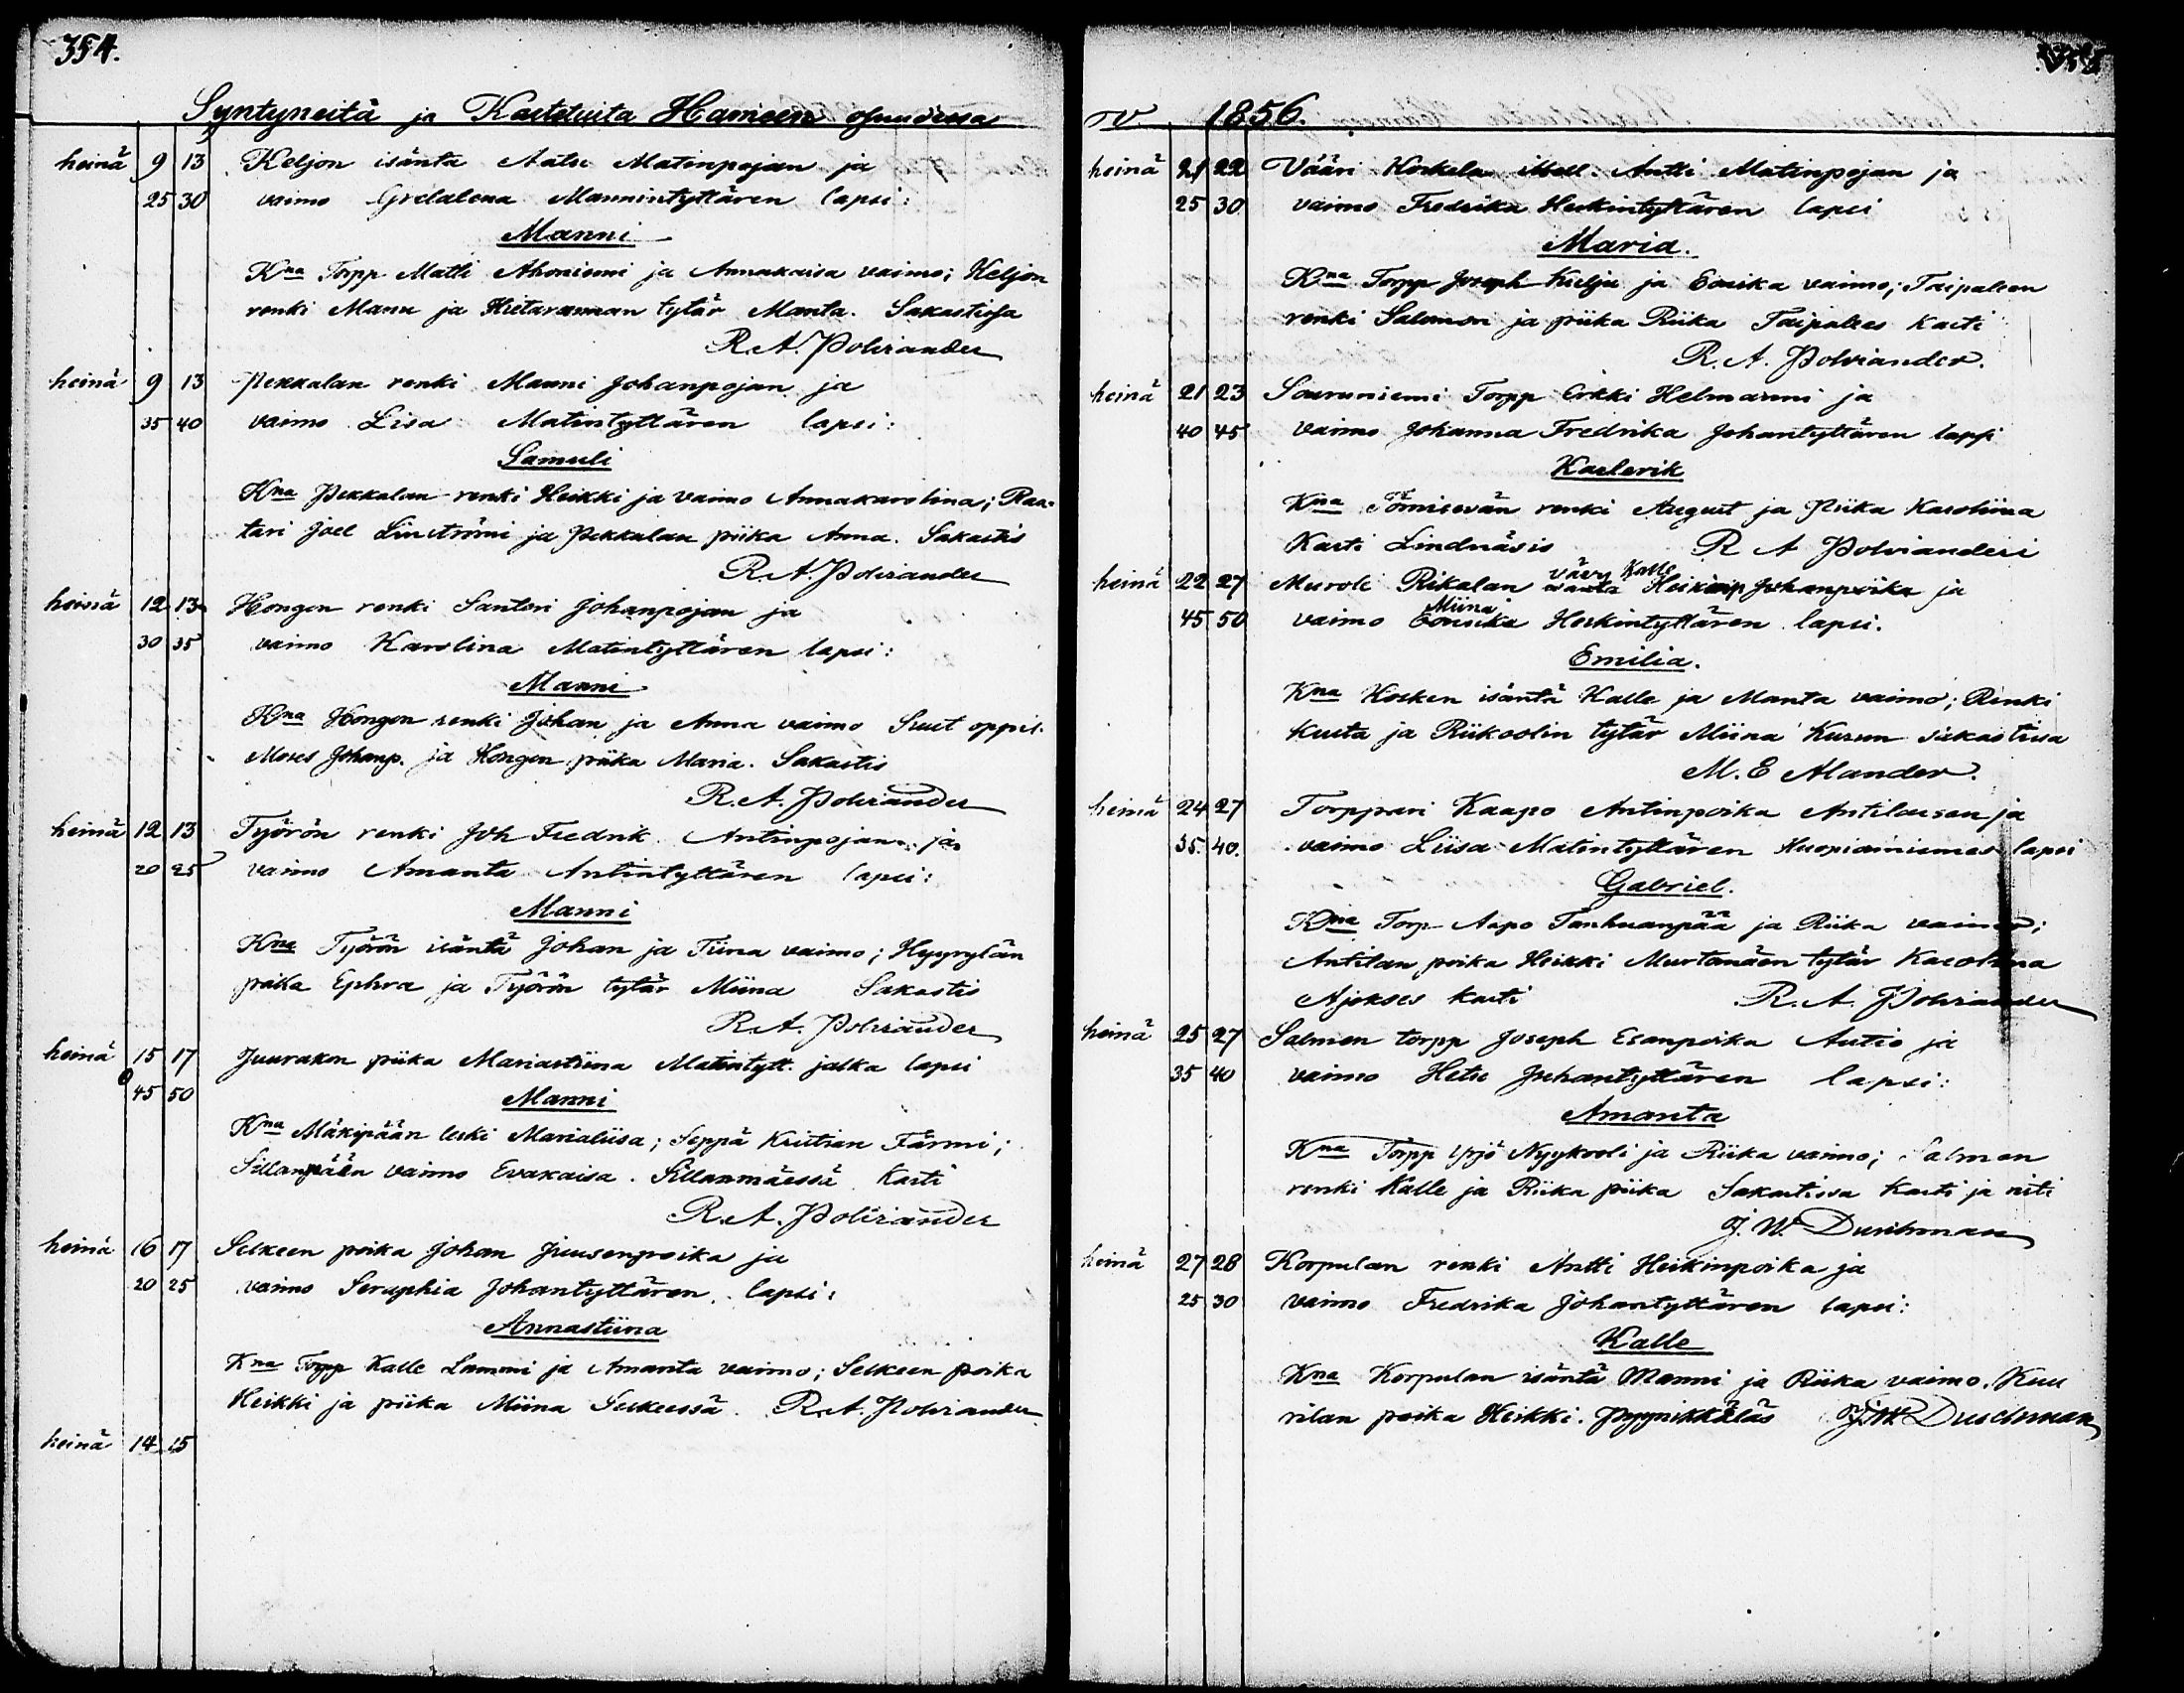 354.
Syntyneitä ja Kastetuita Hameen osuudessa
heinä 9 13 Keljon isäntä Aatu Matinpojan ja
25 30 vaimo Gretalena Mannintyttären lapsi:
Manni
Kna Torpp Matti Ahoniemi ja Annakaisa vaimo; Keljon
renki Manu ja Hietarannan tytär Manta. Sakastissa
R. A. Polviander
heinä 9 13 Pekkalan renki Manni Johanpojan ja
35 40 vaimo Lisa Matintyttären lapsi:
Samuli
Kna Pekkalan renki Heikki ja vaimo Annakarolina; Raa-
tari Joel Linströmi ja Pekkalan piika Anna. Sakastis
R. A. Polviander
heinä 12 13 Hongon renki Santeri Johanpojan ja
30 35 vaimo Karolina Matintyttären lapsi:
Manni
Kna Hongon renki Johan ja Anna vaimo Suut oppil.
Moses Johanp. ja Hongon piika Maria. Sakastis
R. A. Polviander
heinä 12 13 Työrön renki Joh Fredrik Antinpojan ja
20 25 vaimo Amanta Antintyttären lapsi:
Manni
Kna Työrön isäntä Johan ja Tiina vaimo; Hyyrylän
poika Ephra ja Työrön tytär Miina Sakastis
R. A. Polviander
heinä 15 17 Juurakon piika Mariastiina Matintytt. jalka lapsi
45 50 Manni
Kna Mäkipään leski Marialiisa; Seppä Kristian Färmi;
Sillanpään vaimo Evakaisa. Sillanmäessä Kasti
R. A. Polviander
heinä 16 17 Selkeen poika Johan Juusenpoika ja
20 25 vaimo Seraphia Johantyttären lapsi:
Annastiina
Kna Torpp Kalle Lammi ja Amanta vaimo; Selkeen poika
Heikki ja piika Miina Selkeessä. R. A. Polviander
heinä 14 15
1856.
heinä 21 22 Vääri Koskela Antti Matinpojan ja
25 30 vaimo Fredrika Heikintyttären lapsi
Maria.
Kna Torpp Joseph Kielju ja Eveika vaimo; Taipaleen
renki Salomon ja piika Riika Taipalees Kasti
R. A. Polviander.
heinä 21 23 Souruniemi Torpp Erkki Helmanni ja
40 45 vaimo Johanna Fredrika Johantyttären lapsi
Kaelerik
Kna Törnisevän renki August ja Piika Karoliina
Kasti Lindnäsis R A Polvianderi
heinä 22 27 Murole Rikalan vävy Kalle Heikinp Johanpoika ja
45 50 vaimo Miina Heikintyttären lapsi.
Emilia.
Kna Kosken isäntä Kalle ja Manta vaimo; Renki
Kusta ja Riikoolin tytär Miina Kurun sakastissa
M. E Alander.
heinä 24 27 Torppari Kaapo Antinpoika Antilansen ja
35. 40. vaimo Liisa Matintyttären Kuopioniemes lapsi
Gabriel.
Kna Torp Aapo Tanhuanpää ja Riika vaimo;
Antilan poika Heikki Murtomäen tytär Karolina
Ajokses kasti R. A. Polviander
heinä 25 27 Salmen torpp Joseph Esanpoika Autio ja
35 40 vaimo Hetu Juhantyttären lapsi:
Amanta
Kna Torpp Yrjö Nyykooli ja Riika vaimo; Salmen
renki Kalle ja Riika piika Sakastissa Kasti ja risti
J. W. Duschman
heinä 27 28 Korpulan renki Antti Heikinpoika ja
25 30 vaimo Fredrika Johantyttären lapsi:
Kalle
Kna Korpulan isäntä Manni ja Riika vaimo. Kuu
rilan poika Heikki. Pyynikkäläs J. W Duschman